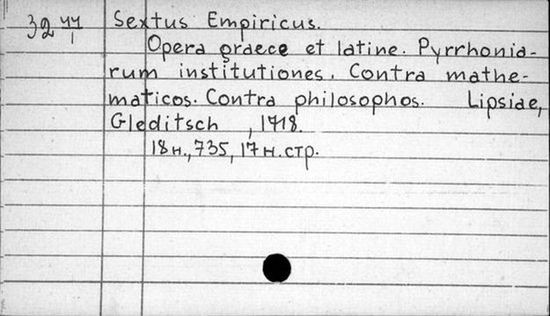 32 44/1
Sextus Empiricus.
Opera graece et latine. Pyrrhonia-
rum institutiones. Contra mathe-
maticos. Contra philosophos. Lipsiae,
Gleditsch , 1718.
18н., 735, 17н. стр.